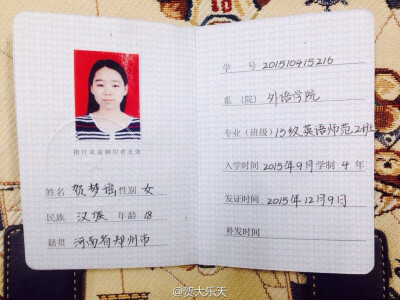 相片未盖钢印者无效
姓名 贺梦瑶 性别 女
民族 汉族 年龄 18
籍贯 河南省郑州市
学 号 201510415216
系（院） 外语学院
专业（班级） 15级英语师范2班
入学时间 2015年9月 学制 4 年
发证时间 2015年12月9日
补发时间
@贺大乐天